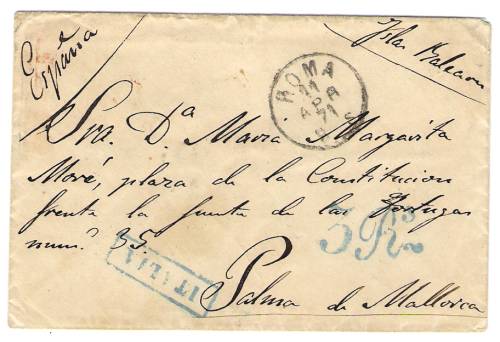 España
Islas Baleares
ROMA
11
APR
71
Sra. Dª Maria Margarita
Moré, plaza de la Constitucion
frente la fuente de las Tortugas
num.º 35.
ITALIA
Palma de Mallorca